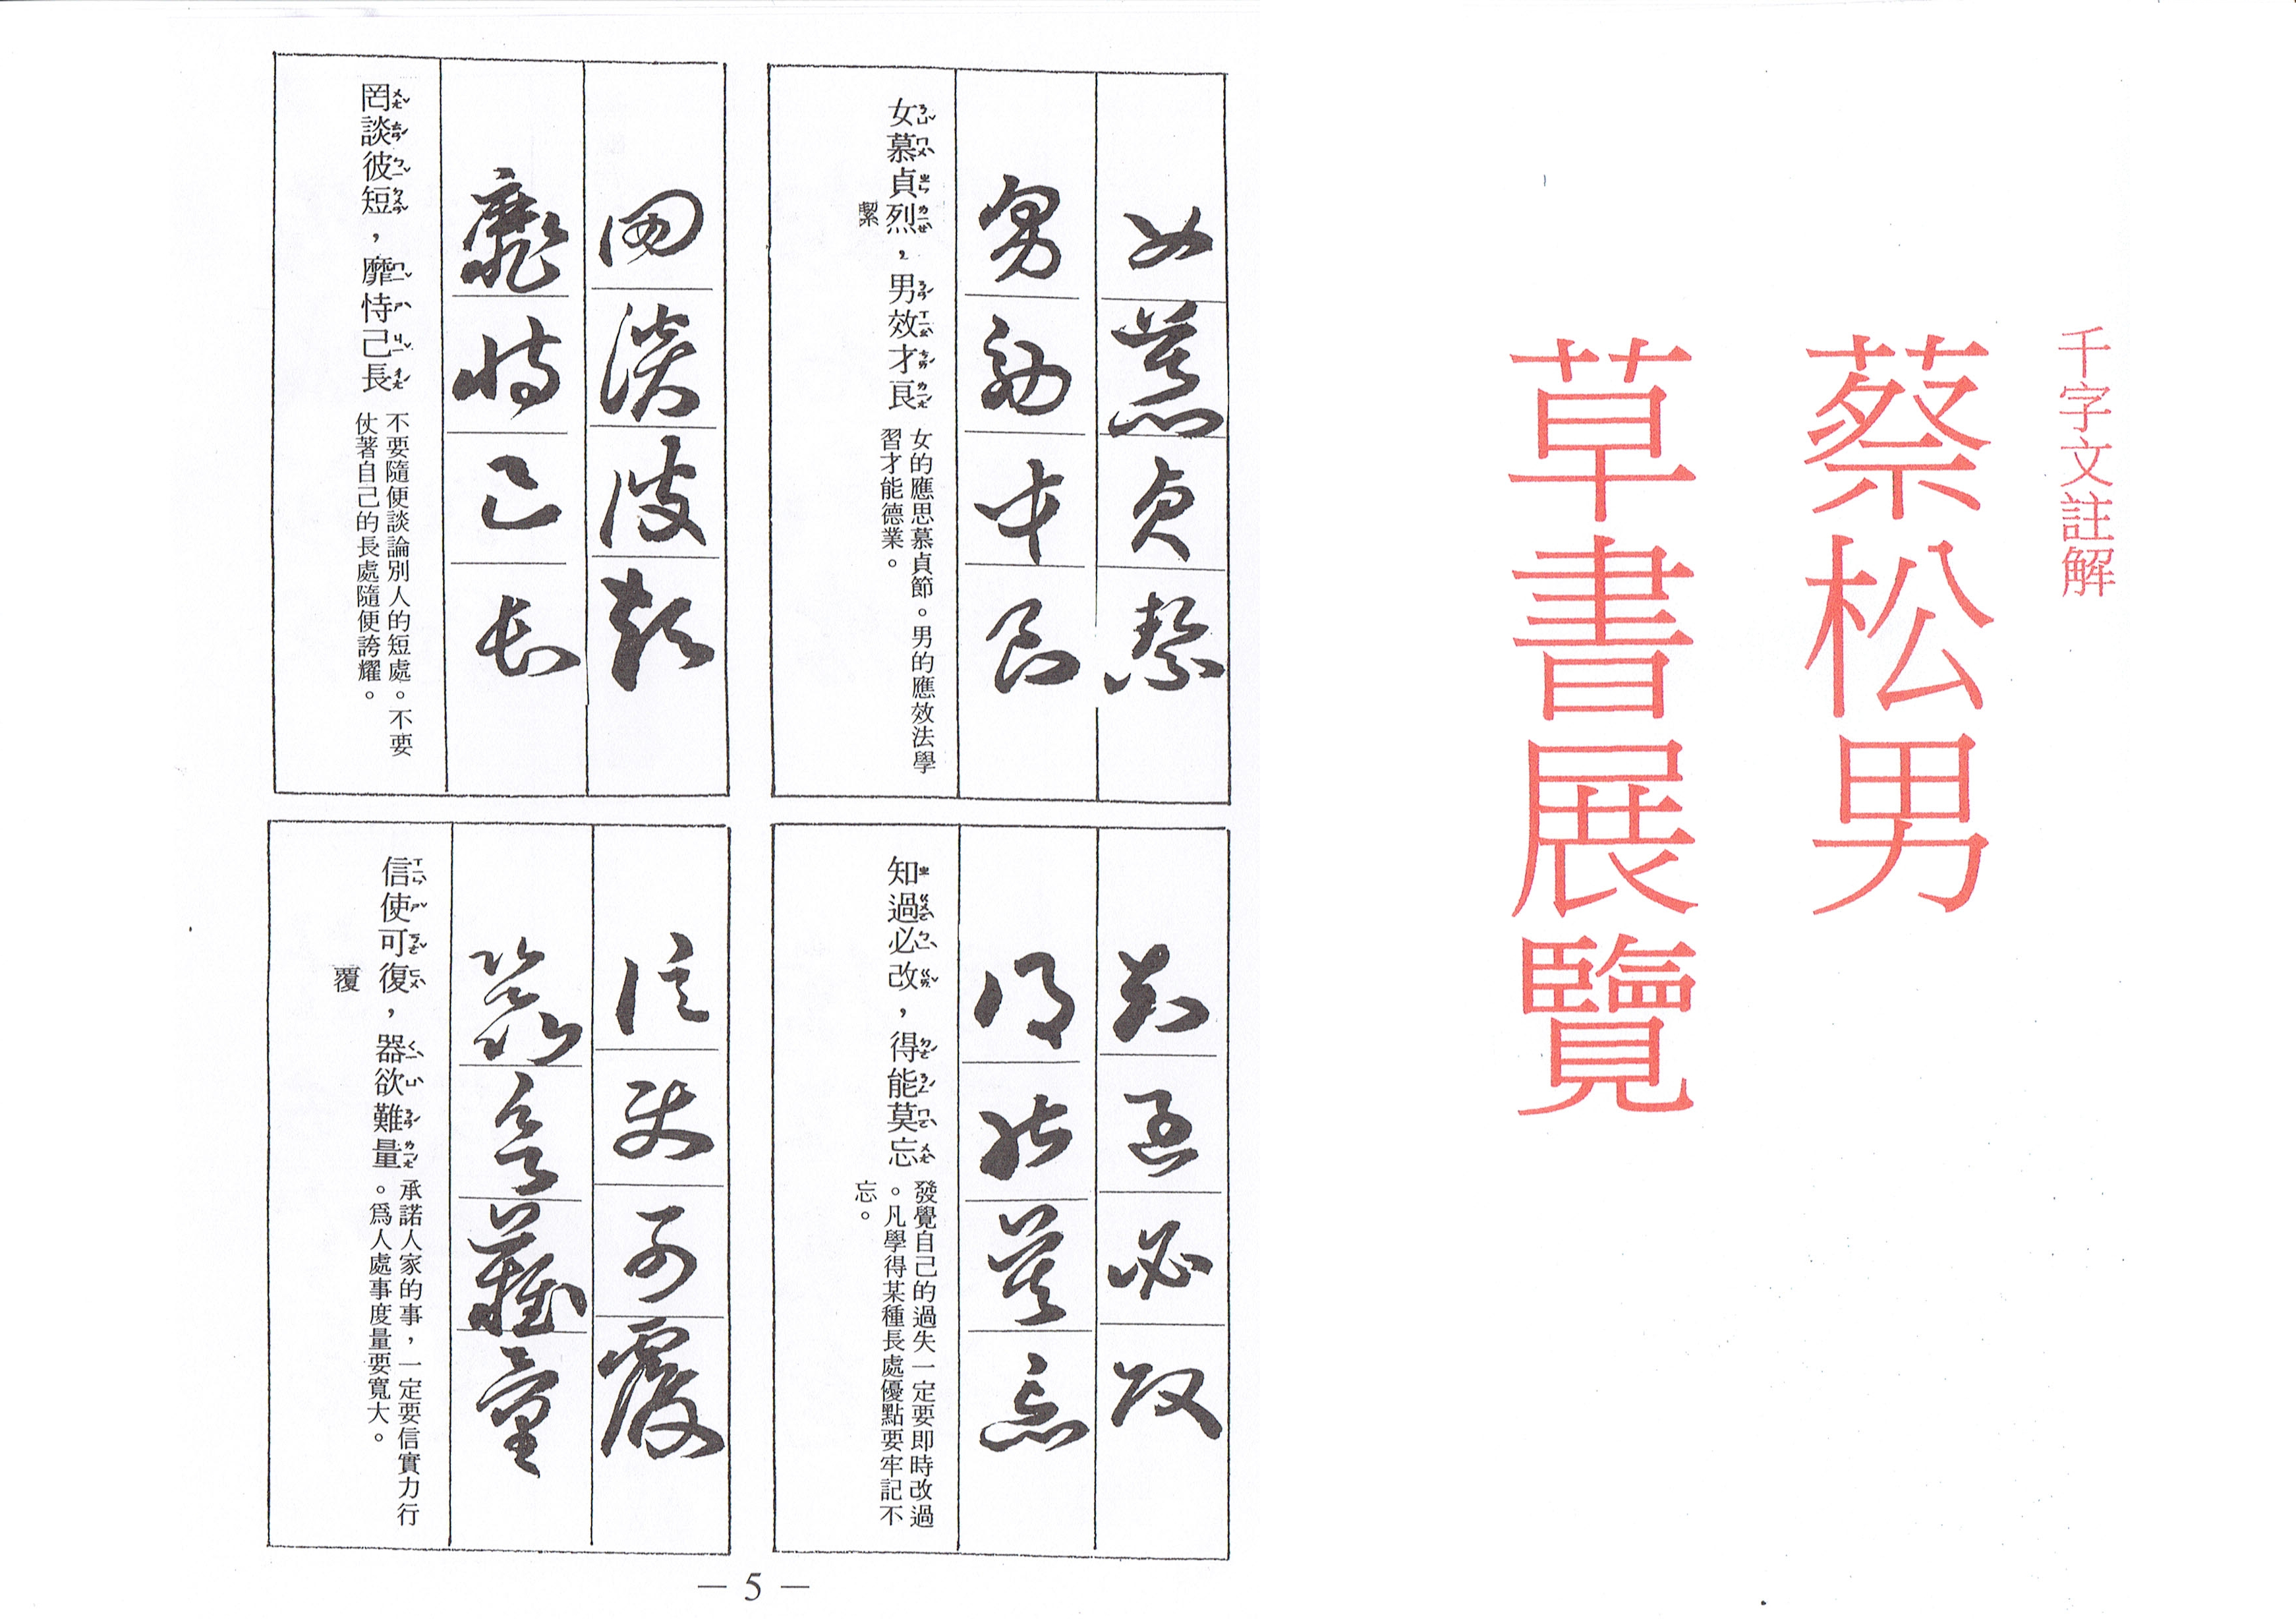 千字文註解
蔡松男
草書展覽
女慕貞絜
男効才良
女慕貞烈，男效才良
絜
女的應思慕貞節。男的應效法學
習才能德業。
知過必改
得能莫忘
知過必改，得能莫忘
發覺自己的過失一定要即時改過
。凡學得某種長處優點要牢記不
忘。
罔談彼短
靡恃己長
罔談彼短，靡恃己長
不要隨便談論別人的短處。不要
仗著自己的長處隨便誇耀。
信使可覆
器欲難量
信使可復，器欲難量
覆
承諾人家的事，一定要信實力行
。爲人處事度量要寬大。
— 5 —